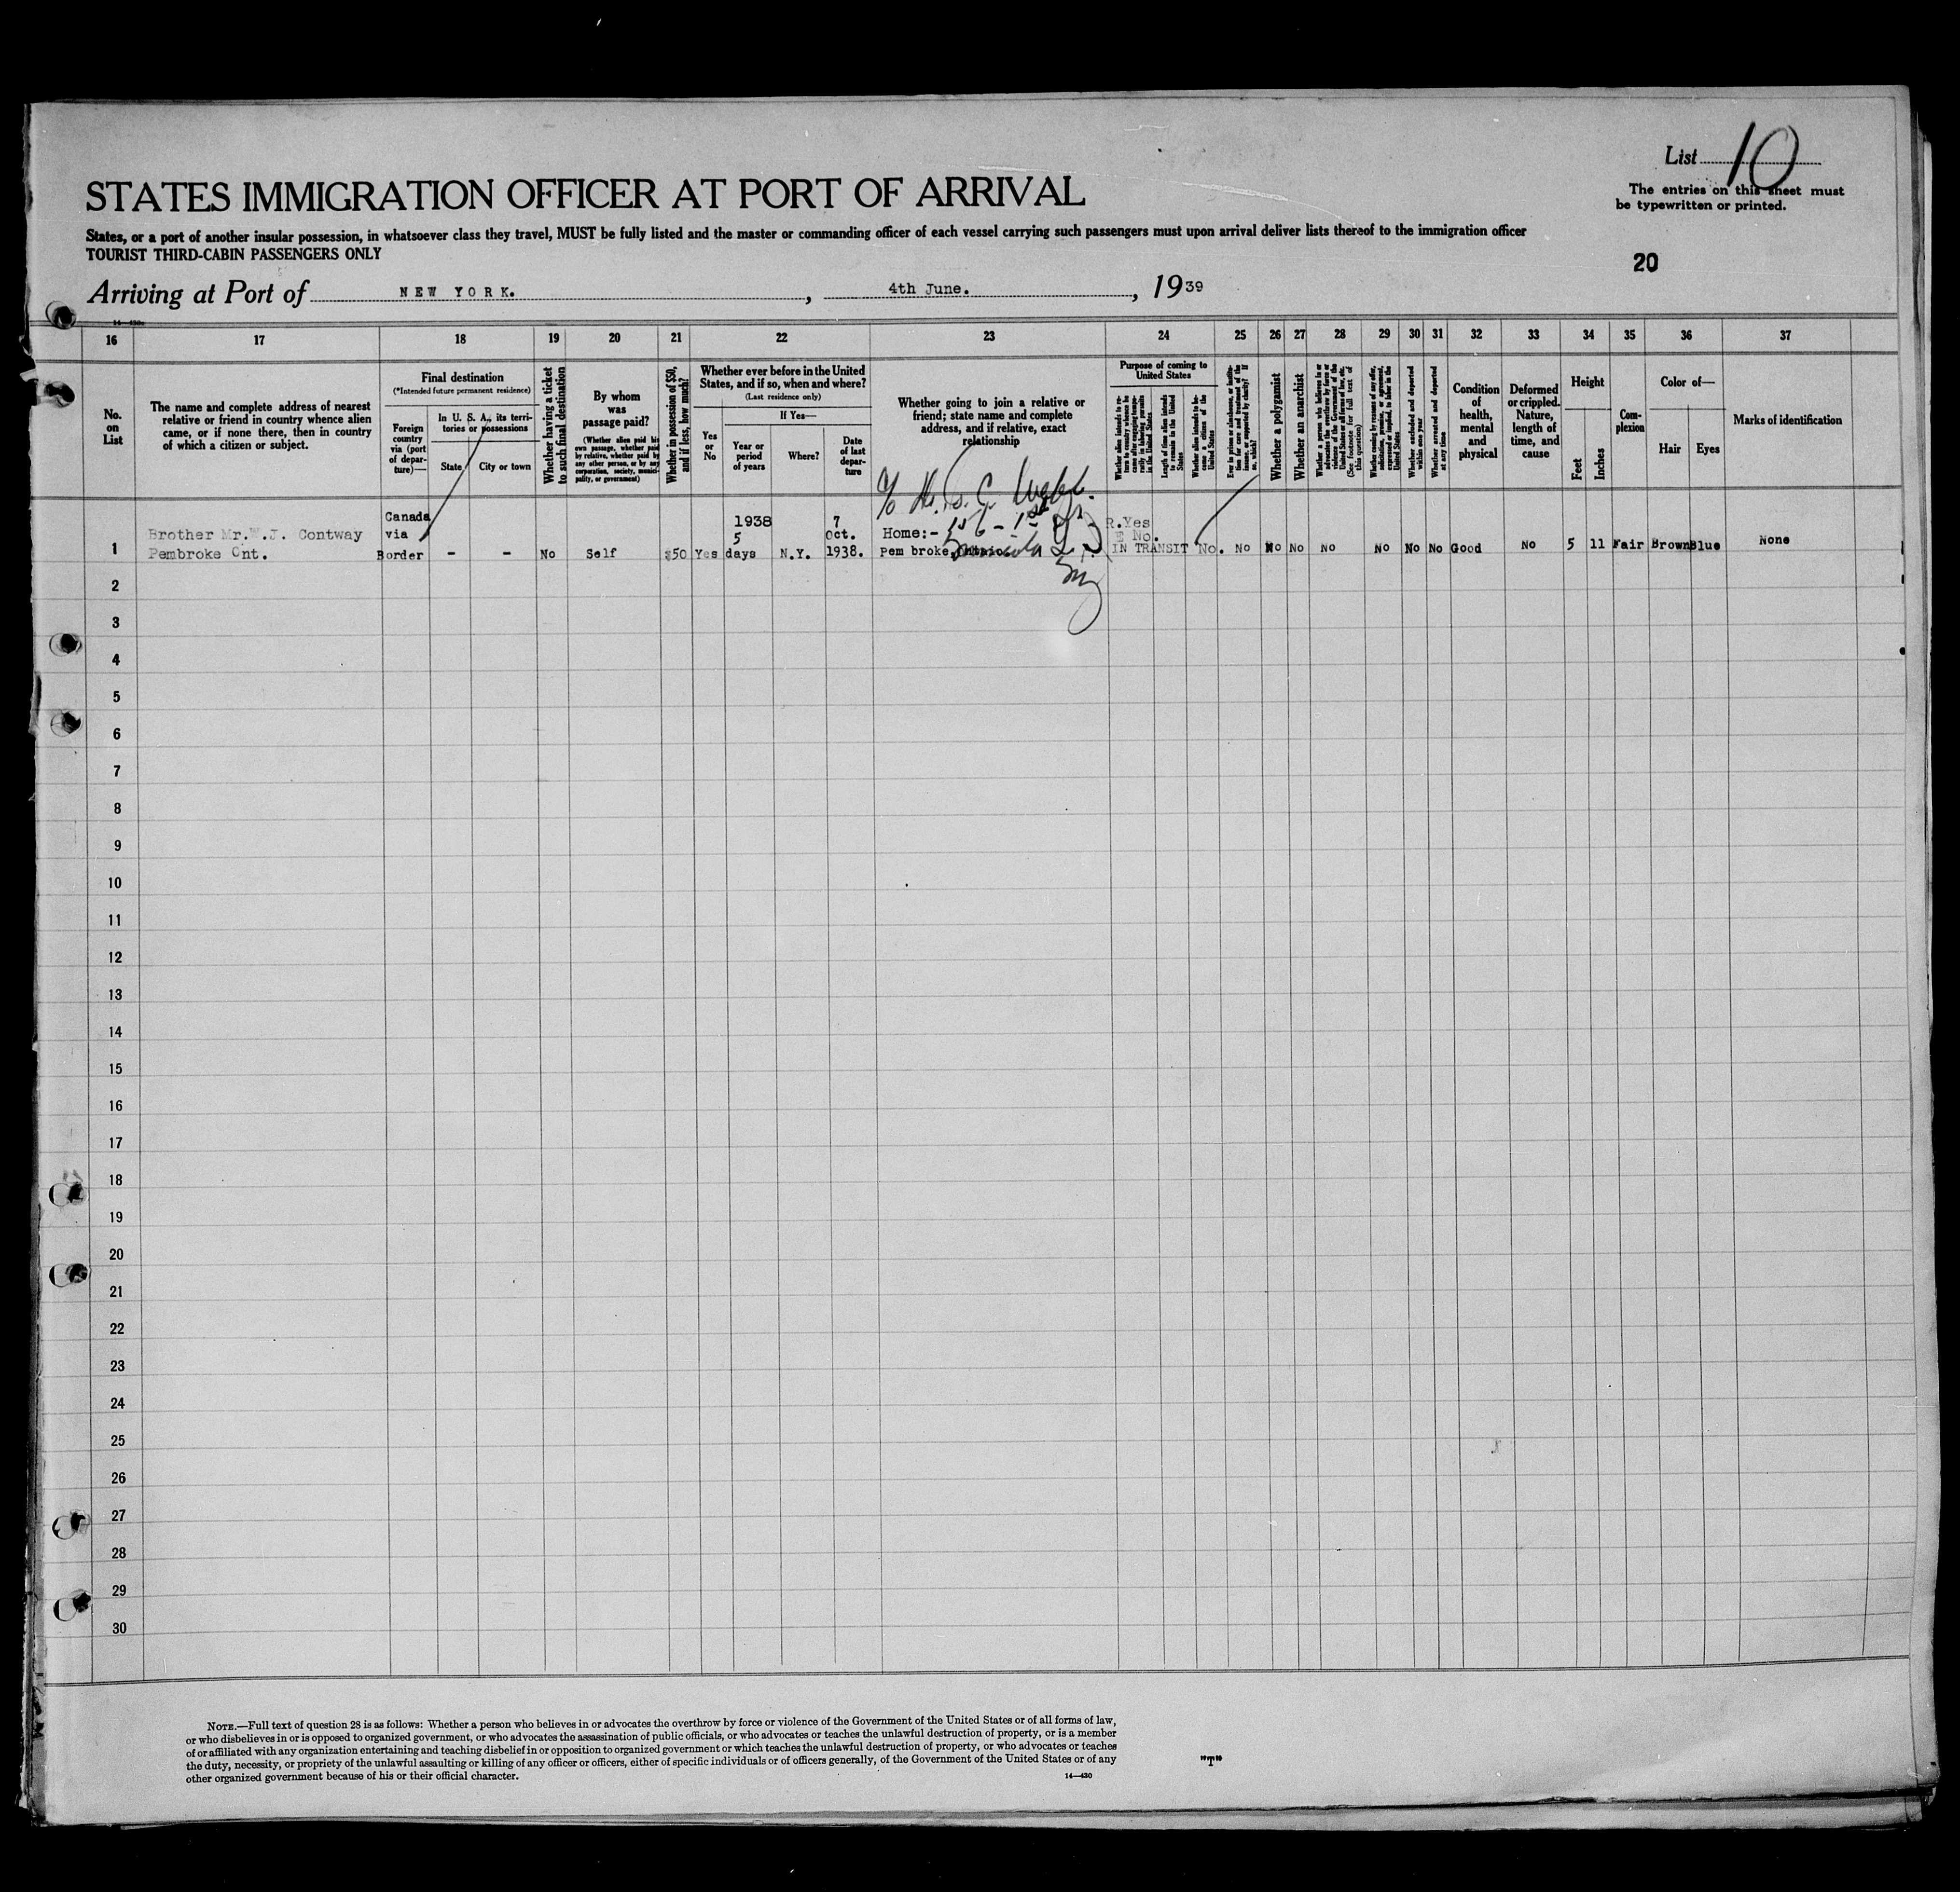 List 10
STATES IMMIGRATION OFFICER AT PORT OF ARRIVAL
The entries on this sheet must
be typewritten or printed.
States, or a port of another insular possession, in whatsoever class they travel, MUST be fully listed and the master or commanding officer of each vessel carrying such passengers must upon arrival deliver lists thereof to the immigration officer
TOURIST THIRD-CABIN PASSENGERS ONLY
20
Arriving at Port of NEW YORK. , 4th June. , 1939
16 17 18 19 20 21 22 23 24 25 26 27 28 29 30 31 32 33 34 35 36 37
No. on List
The name and complete address of nearest
relative or friend in country whence alien
came, or if none there, then in country
of which a citizen or subject.
Final destination
(*Intended future permanent residence)
Foreign country via (port of departure)—
In U. S. A., its territories or possessions
State
City or town
Whether having a ticket to such final destination
By whom was passage paid?
(Whether alien paid his own passage, whether paid by relative, whether paid by any other person, or by any corporation, society, municipality, or government)
Whether in possession of $50, and if less, how much?
Whether ever before in the United
States, and if so, when and where?
(Last residence only)
Yes or No
If Yes—
Year or period of years
Where?
Date of last departure
Whether going to join a relative or
friend; state name and complete
address, and if relative, exact
relationship
Purpose of coming to
United States
Length of time alien intends to remain in the United States
Whether alien intends to become a citizen of the United States
Whether a polygamist
Whether an anarchist
(See footnote for full text of this question)
Whether excluded and deported within one year
Whether arrested and deported at any time
Condition of health, mental and physical
Deformed or crippled. Nature, length of time, and cause
Height
Feet
Inches
Complexion
Color of—
Hair
Eyes
Marks of identification
1
Brother Mr.W.J. Contway
Pembroke Ont.
Canada
via
Border
-
-
No
Self
$50
Yes
1938
5
days
N.Y.
7
Oct.
1938.
c/o
Home:-
Pem broke,Ontario
R.Yes
E No.
IN TRANSIT No.
No No No No No No No Good No 5 11 Fair Brown Blue None
2
3
4
5
6
7
8
9
10
11
12
13
14
15
16
17
18
19
20
21
22
23
24
25
26
27
28
29
30
NOTE.—Full text of question 28 is as follows: Whether a person who believes in or advocates the overthrow by force or violence of the Government of the United States or of all forms of law,
or who disbelieves in or is opposed to organized government, or who advocates the assassination of public officials, or who advocates or teaches the unlawful destruction of property, or is a member
of or affiliated with any organization entertaining and teaching disbelief in or opposition to organized government or which teaches the unlawful destruction of property, or who advocates or teaches
the duty, necessity, or propriety of the unlawful assaulting or killing of any officer or officers, either of specific individuals or of officers generally, of the Government of the United States or of any
other organized government because of his or their official character.
14—430
"T"